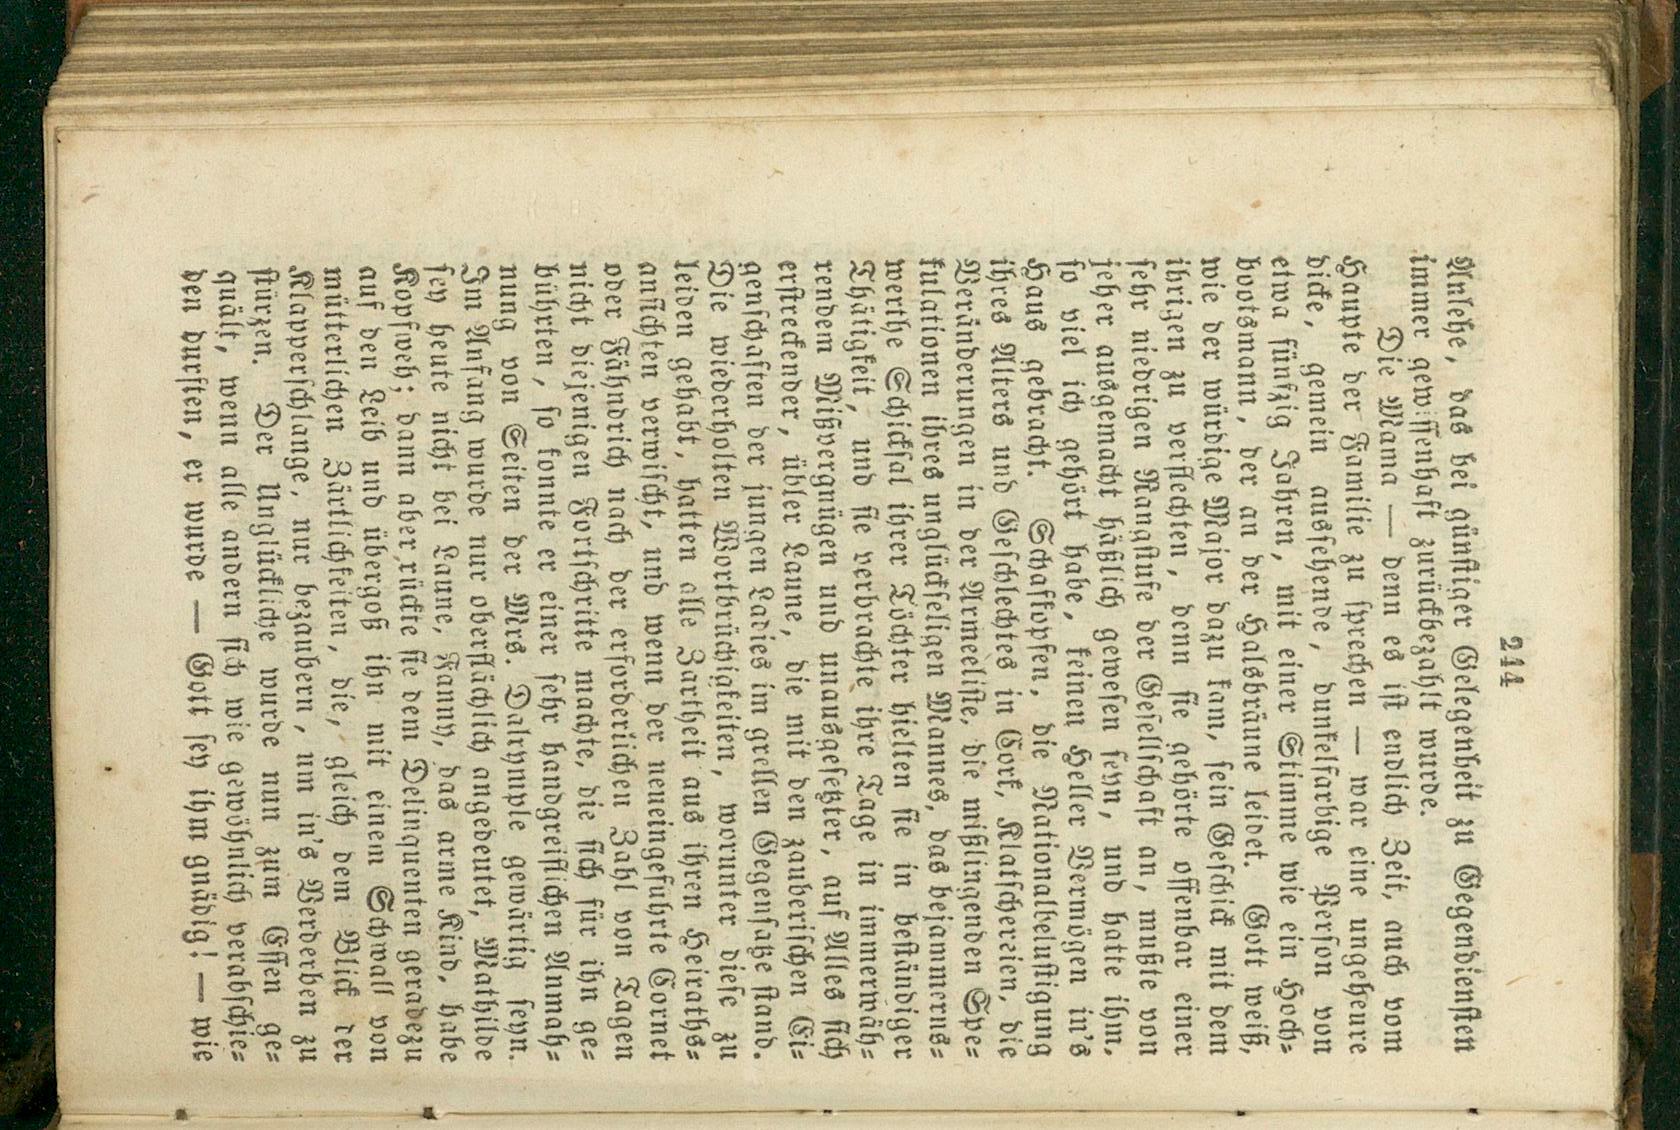 244
Anlehe, das bei günstiger Gelegenheit zu Gegendiensten
immer gewissenhaft zurückbezahlt wurde.
Die Mama — denn es ist endlich Zeit, auch vom
Haupte der Familie zu sprechen — war eine ungeheure
dicke, gemein aussehende, dunkelfarbige Person von
etwa fünfzig Jahren, mit einer Stimme wie ein Hoch-
bootsmann, der an der Halsbräune leidet. Gott weiß,
wie der würdige Major dazu kam, sein Geschick mit dem
ihrigen zu verflechten, denn sie gehörte offenbar einer
sehr niedrigen Rangstufe der Gesellschaft an, mußte von
jeher ausgemacht häßlich gewesen seyn, und hatte ihm,
so viel ich gehört habe, keinen Heller Vermögen in's
Haus gebracht. Schafkopfen, die Nationalbelustigung
ihres Alters und Geschlechtes in Cork, Klatschereien, die
Veränderungen in der Armeeliste, die mißlingenden Spe-
kulationen ihres unglückseligen Mannes, das bejammerns-
werthe Schicksal ihrer Töchter hielten sie in beständiger
Thätigkeit, und sie verbrachte ihre Tage in immerwäh-
rendem Mißvergnügen und unausgesetzter, auf Alles sich
erstreckender, übler Laune, die mit den zauberischen Ei-
genschaften der jungen Ladies im grellen Gegensatze stand.
Die wiederholten Wortbrüchigkeiten, worunter diese zu
leiden gehabt, hatten alle Zartheit aus ihren Heiraths-
ansichten verwischt, und wenn der neueingeführte Cornet
oder Fähndrich nach der erforderlichen Zahl von Tagen
nicht diejenigen Fortschritte machte, die sich für ihn ge-
bührten, so konnte er einer sehr handgreiflichen Anmah-
nung von Seiten der Mrs. Dalrymple gewärtig seyn.
Im Anfang wurde nur oberflächlich angedeutet, Mathilde
sey heute nicht bei Laune, Fanny, das arme Kind, habe
Kopfweh; dann aber rückte sie dem Delinquenten geradezu
auf den Leib und übergoß ihn mit einem Schwall von
mütterlichen Zärtlichkeiten, die, gleich dem Blick der
Klapperschlange, nur bezaubern, um in's Verderben zu
stürzen. Der Unglückliche wurde nun zum Essen ge-
quält, wenn alle andern sich wie gewöhnlich verabschie-
den durften, er wurde — Gott sey ihm gnädig! — wie